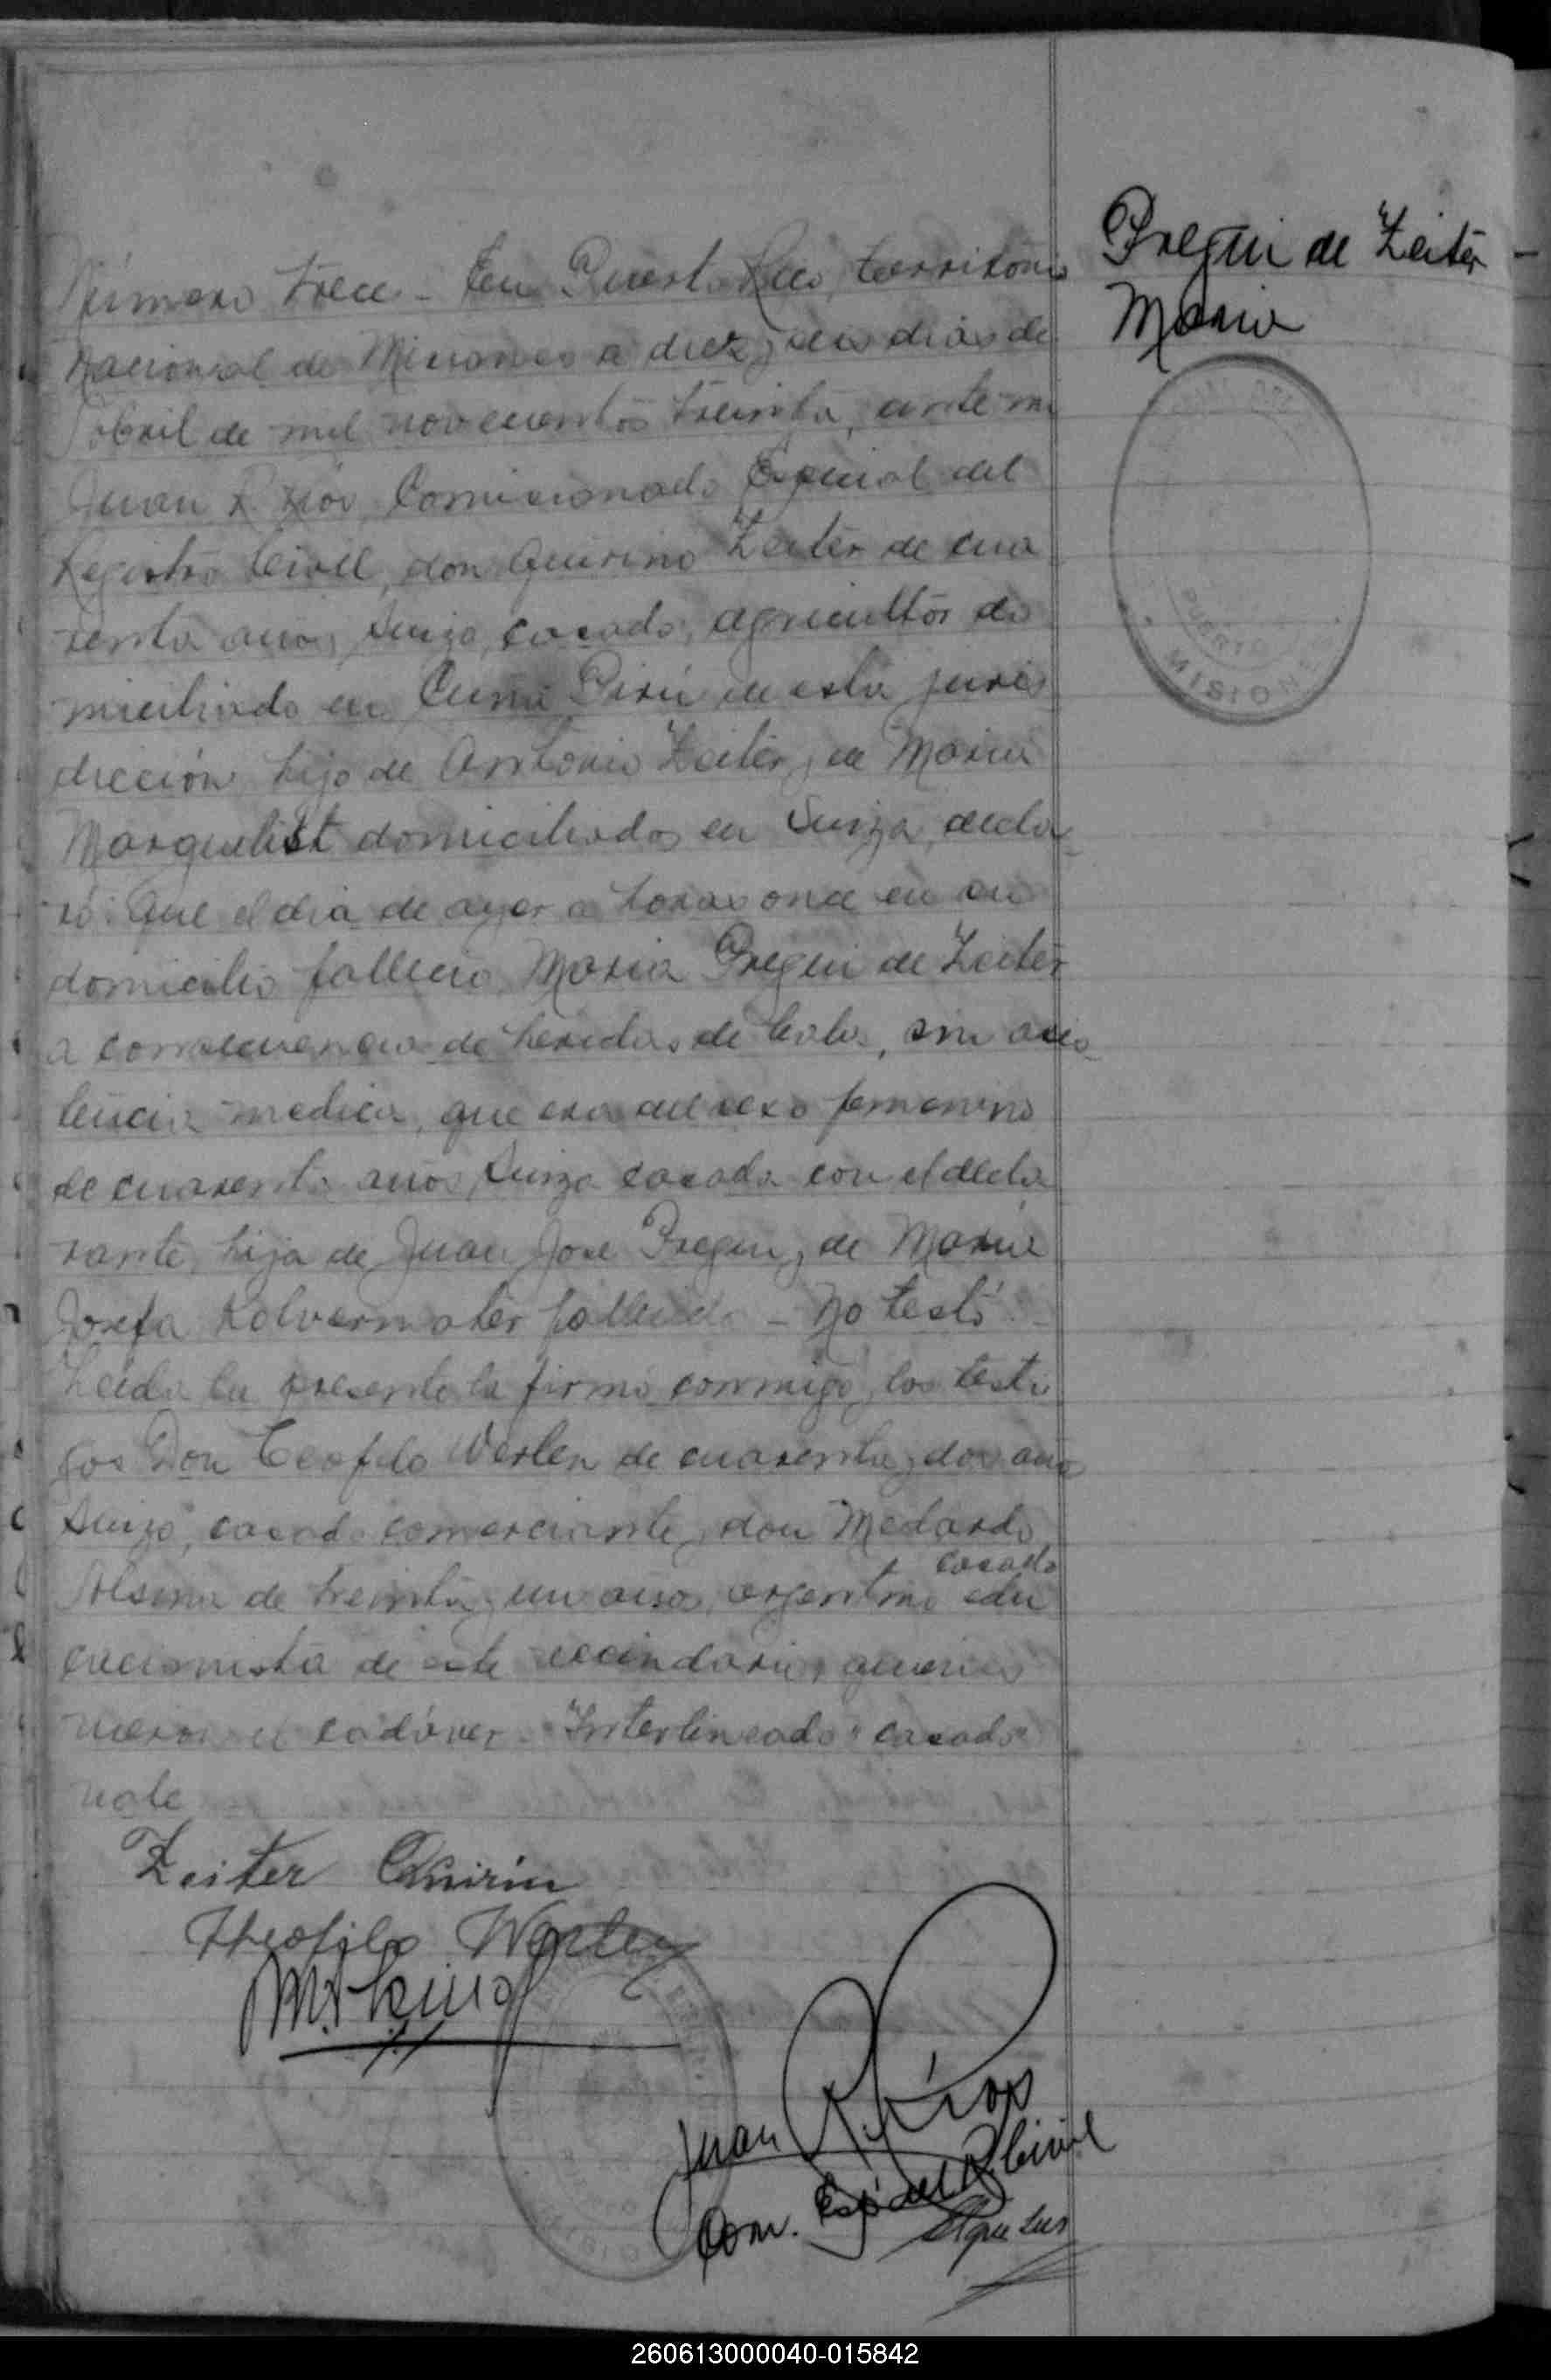 Pregui de Zeiter
Maria
Número trece - En Puerto Rico, territorio
nacional de Misiones a diez y seis dias de
Abril de mil novecientos treinta, ante mi
Juan R. Ríos, Comisionado Especial del
Registro Civil, don Quirino Zeiter de cua
renta años, suizo, casado, agricultor do
miciliado en Cuña Pirú de esta juris
dicción, hijo de Antonio Zeiter y de Maria
Marguelist domiciliados en Suiza, decla
ró: Que el dia de ayer a horas once en su
domicilio falleció Maria Pregui de Zeiter
a consecuencia de heridas de bala, sin asis
tencia medica, que era del sexo femenino
de cuarenta años, suiza casada con el decla
rante, hija de Juan Jose Pregui y de Maria
Josefa fallecida - No testó.
Leída la presente la firmó conmigo y los testi
gos Don Teofilo Werlen de cuarenta y dos años
suizo, casado comerciante y don Medardo
casado
Alsina de treinta y un años, argentino edu
cacionista de este vecindario, quienes
vieron el cadáver. Interlineado "casado"
vale
Zeiter Quirin
Theofilo Werlen
M. Alsina
Juan R. Ríos
Com. Esp. del R. Civil
PUERTO
MISIONES
260613000040-015842